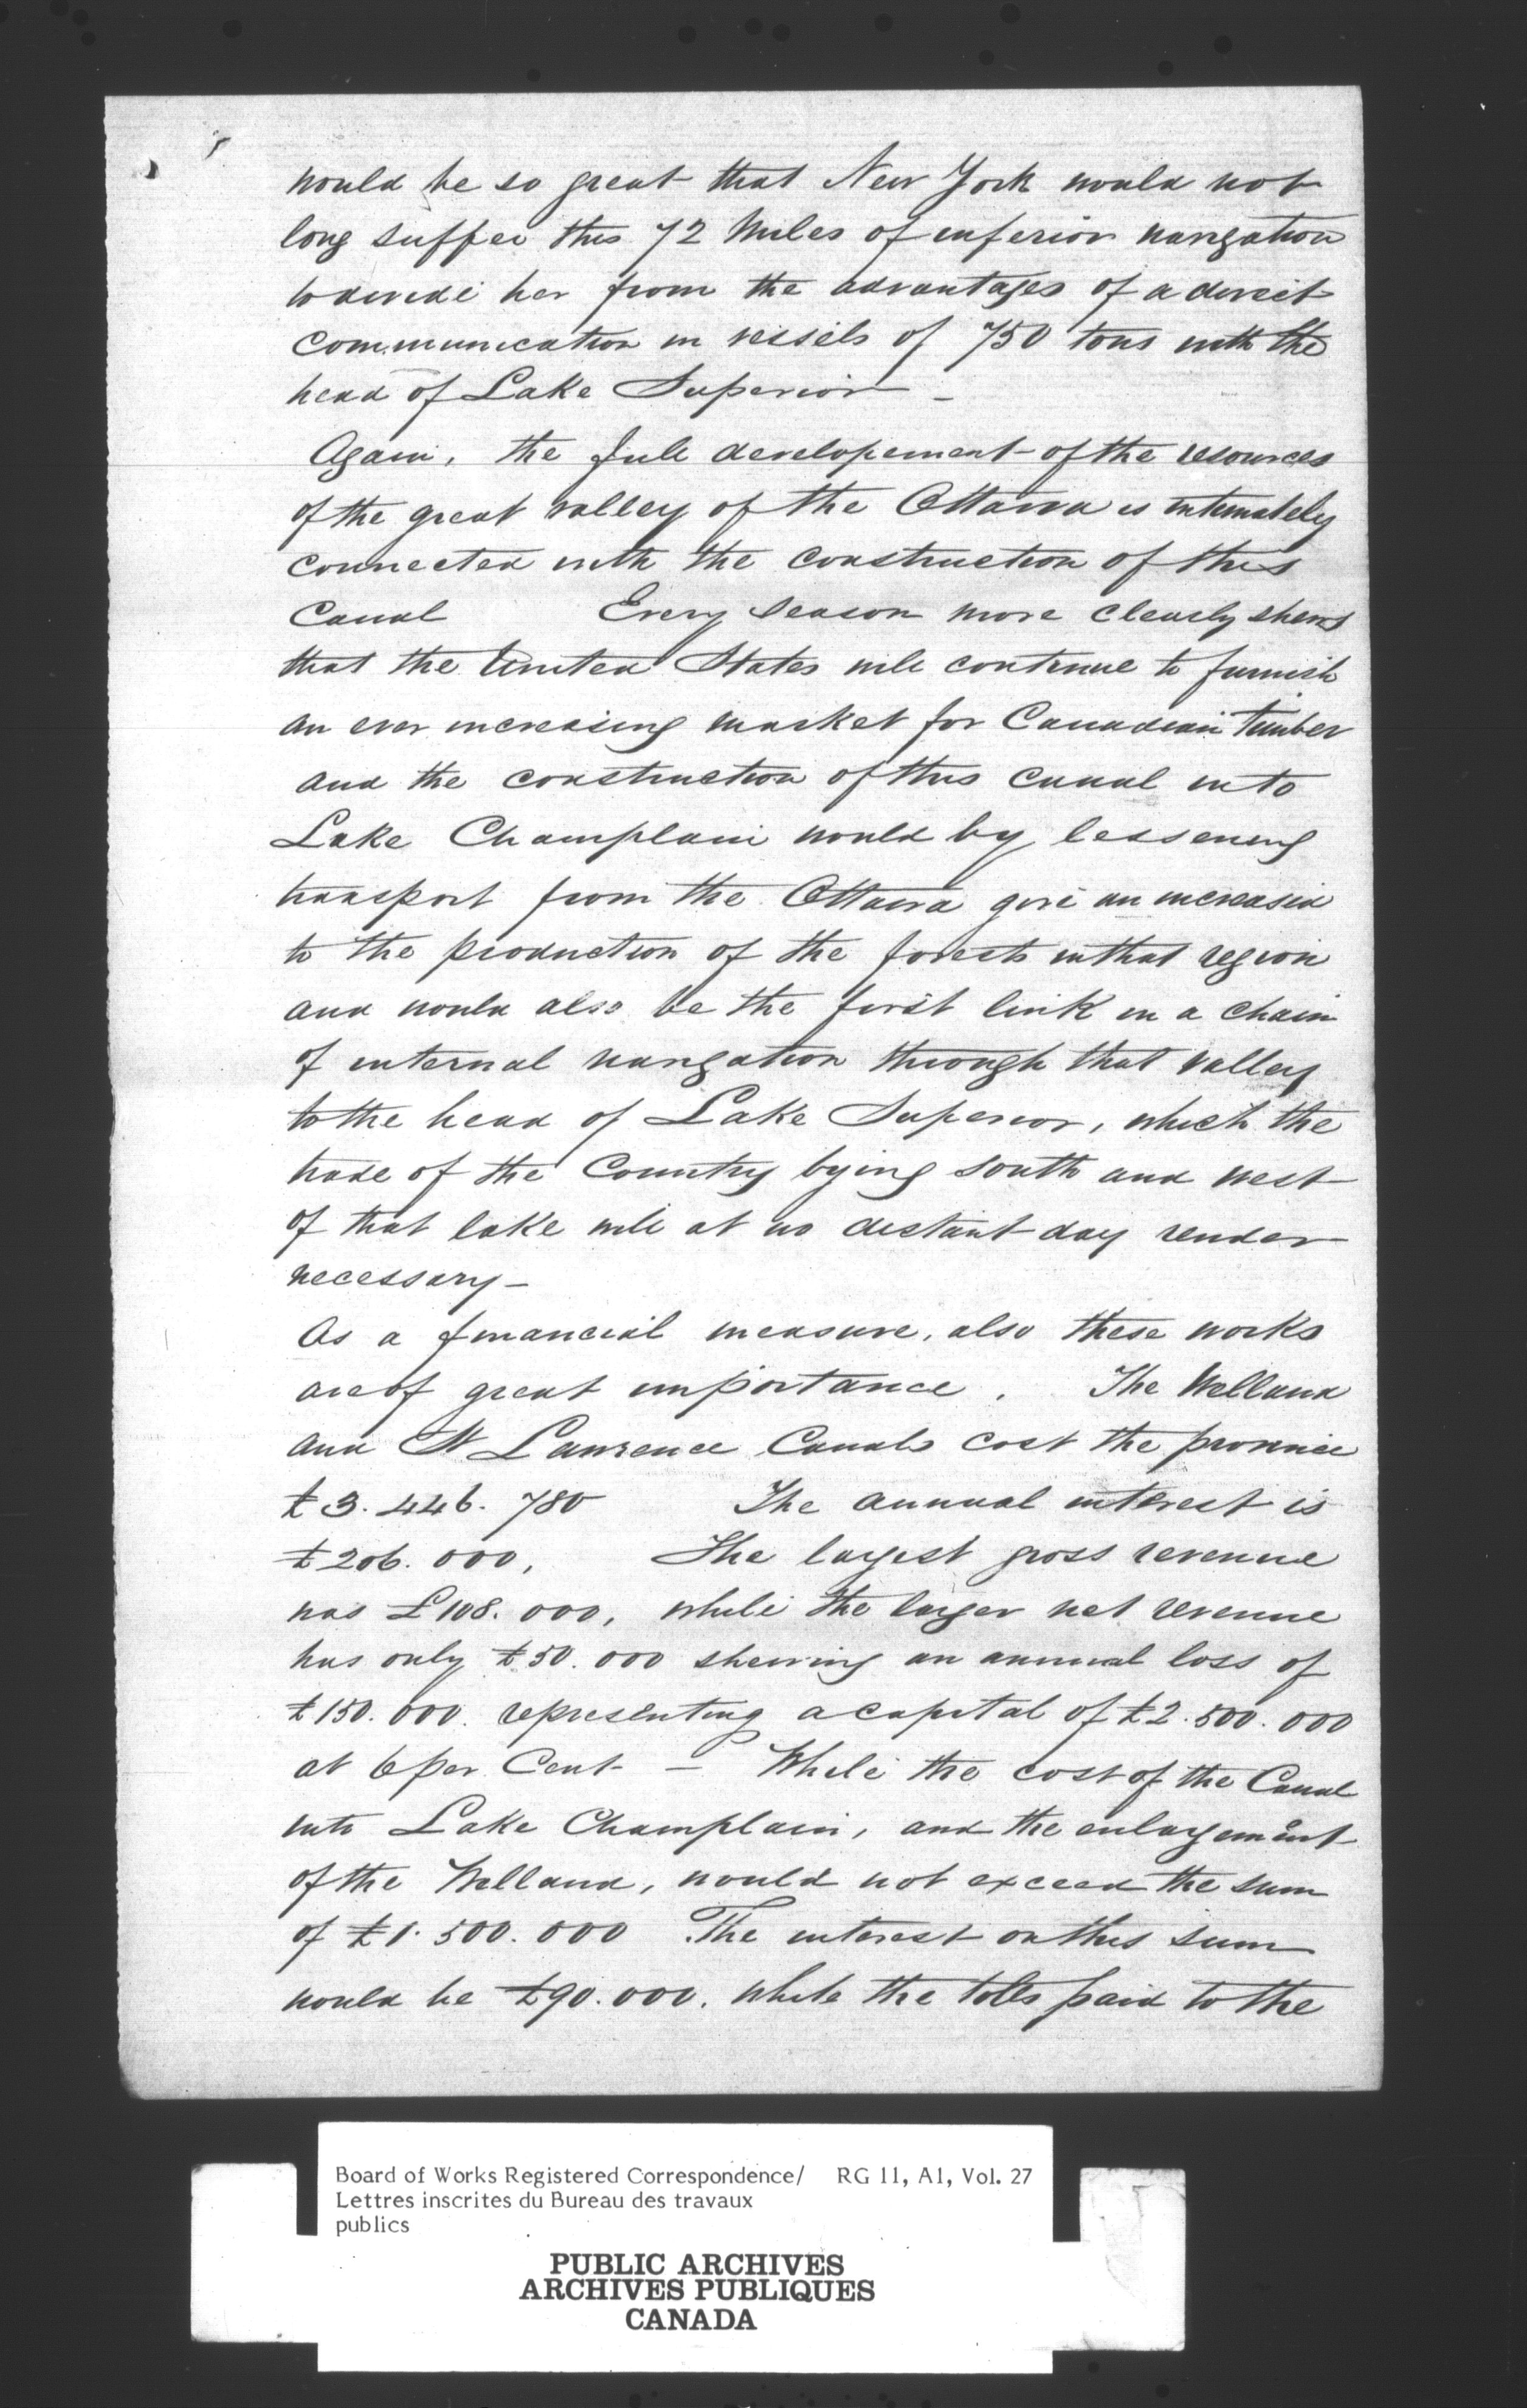 would be so great that New York would not
long suffer this 72 Miles of inferior navigation
to divide her from the advantages of a direct
communication in vessels of 750 tons with the
head of Lake Superior _
Again, the full developement of the resources
of the great valley of the Ottawa is intimately
connected with the construction of this
Canal Every season more clearly shews
that the United States will continue to furnish
an ever increasing market for Canadian timber
and the construction of this canal into
Lake Champlain would by lessening
transport from the Ottawa give an increased
to the production of the forests in that region
and would also be the first link in a chain
of internal navigation through that valley
to the head of Lake Superior, which the
trade of the Country lying south and west
of that lake will at no distant day render
necessary _
As a financial measure, also these works
are of great importance . The Welland
and St Lawrence Canals cost the province
£3. 446. 780 The annual interest is
£206. 000, The largest gross revenue
was £108. 000, while the larger net revenue
has only £50. 000 shewing an annual loss of
£150. 000. representing a capital of £2. 500. 000
at 6 per Cent – While the cost of the Canal
into Lake Champlain, and the enlargement
of the Welland, would not exceed the sum
of £1. 500. 000 The interest on this sum
would be £90. 000. while the tolls paid to the
Board of Works Registered Correspondence/ RG 11, A1, Vol. 27
Lettres inscrites du Bureau des travaux
publics
PUBLIC ARCHIVES
ARCHIVES PUBLIQUES
CANADA